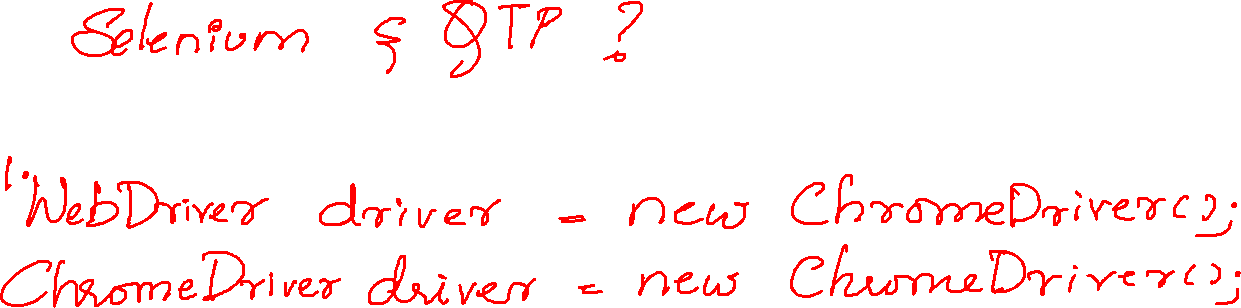 Selenium & QTP ?
1. WebDriver driver = new ChromeDriver();
ChromeDriver driver = new ChromeDriver();